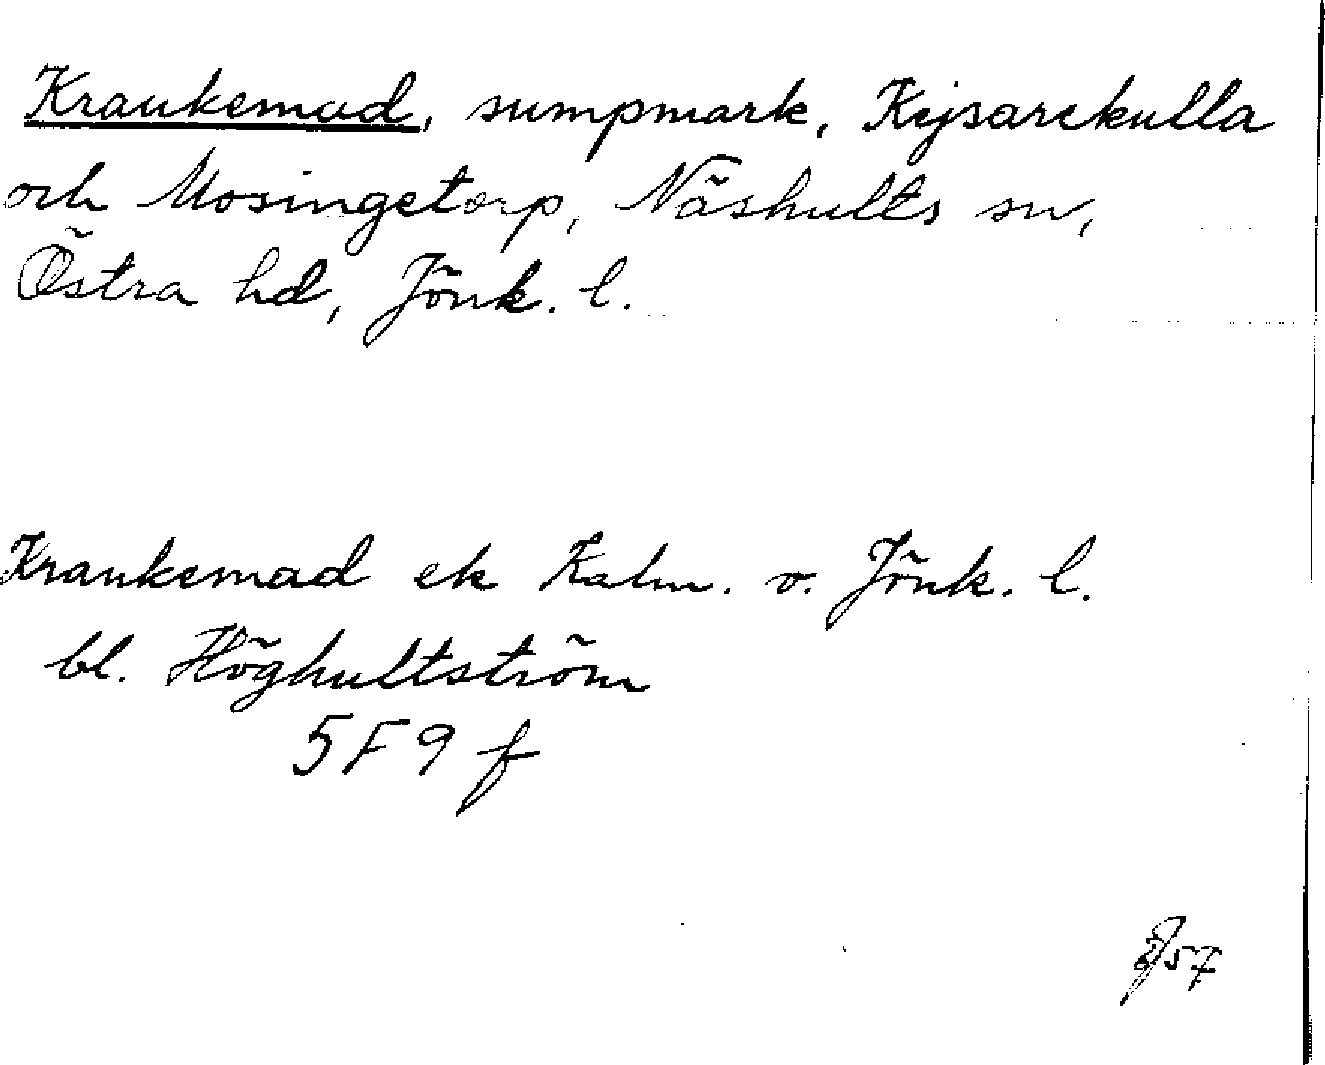 Kraukemad, sumpmark, Kejsarekulla
och Mosingetorp, Näshults sn,
Östra hd, Jönk. l.
Kraukemad ek Kalm. o. Jönk. l.
bl. Höghultström
5F9 f
57